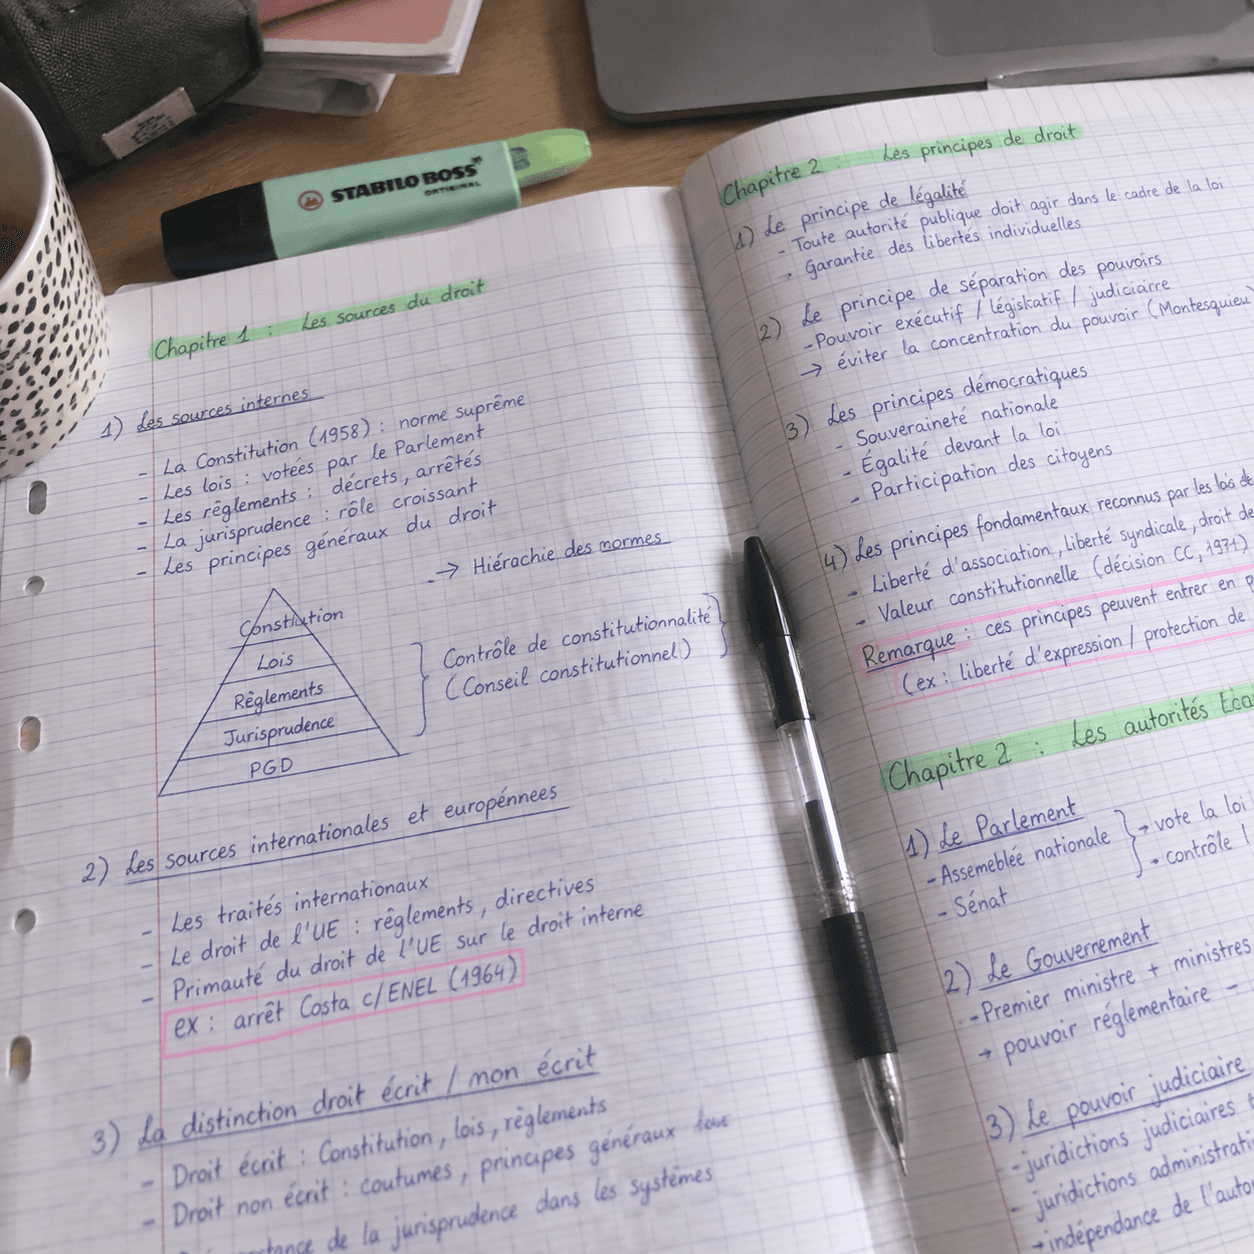 STABILO BOSS
ORTIGINAL
Chapitre 1 : Les sources du droit
1) Les sources internes
- La Constitution (1958) : norme suprême
- Les lois : votées par le Parlement
- Les rêglements : décrets, arrêtés
- La jurisprudence : rôle croissant
- Les principes généraux du droit
-→ Hiérachie des normes
Constiution
Lois
Rêglements
Jurisprudence
PGD
Contrôle de constitutionnalité
(Conseil constitutionnel)
2) Les sources internationales et europénnees
- Les traités internationaux
- Le droit de l'UE : rêglements, directives
- Primauté du droit de l'UE sur le droit interne
ex : arrêt Costa c/ENEL (1964)
3) La distinction droit écrit / mon écrit
- Droit écrit : Constitution, lois, règlements
- Droit non écrit : coutumes, principes généraux
de la jurisprudence dans les systêmes
Chapitre 2 : Les principes de droit
1) Le principe de légalité
- Toute autorité publique doit agir dans le cadre de la loi
→ Garantie des libertés individuelles
2) Le principe de séparation des pouvoirs
- Pouvoir exécutif / législkatif / judiciairre
→ éviter la concentration du pouvoir (Montesquieu)
3) Les principes démocratiques
- Souveraineté nationale
- Égalité devant la loi
- Participation des citoyens
4) Les principes fondamentaux reconnus par les lois de
- Liberté d'association, liberté syndicale, droit de
- Valeur constitutionnelle (décision CC, 1971)
Remarque : ces principes peuvent entrer en
(ex : liberté d'expression / protection de
Chapitre 2 : Les autorités
1) Le Parlement
- Assemeblée nationale
- Sénat
→ vote la loi
• contrôle l
2) Le Gouvernement
- Premier ministre + ministres
→ pouvoir réglementaire -
3) Le pouvoir judiciaire
- juridictions judiciaires
- juridictions administrati
→ indépendance de l'autor